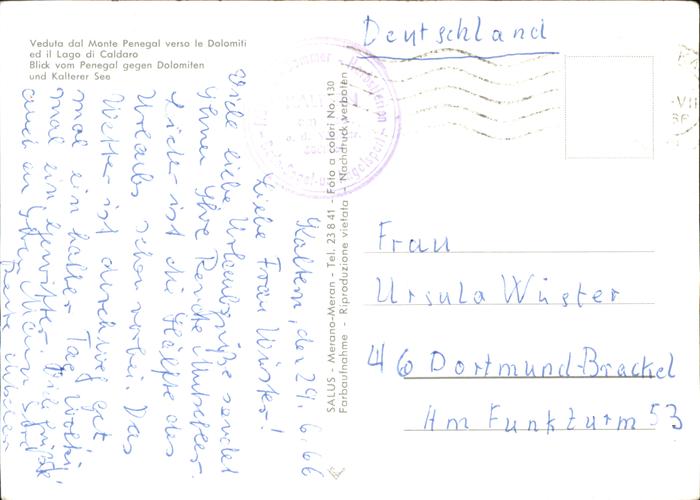 Veduta dal Monte Penegal verso le Dolomiti
ed il Lago di Caldaro
Blick vom Penegal gegen Dolomiten
und Kalterer See
Deutschland
Kaltern, den 24. 6. 66
Liebe Frau Wüster!
Viele liebe Urlaubsgrüße sendet
Ihnen Ihre Renate
Leider ist die Hälfte des
Urlaubs schon vorbei. Das
Wetter ist durchweg gut
mal ein halber Tag
mal ein Gewitter. Viele Grüße
auch an Ihren Mann
SALUS - Merano-Meran - Tel. 23 8 41 - Foto a colori No. 130
Farbaufnahme - Riproduzione vietata - Nachdruck verboten
Frau
Ursula Wüster
46 Dortmund-Brackel
Am Funkturm 53